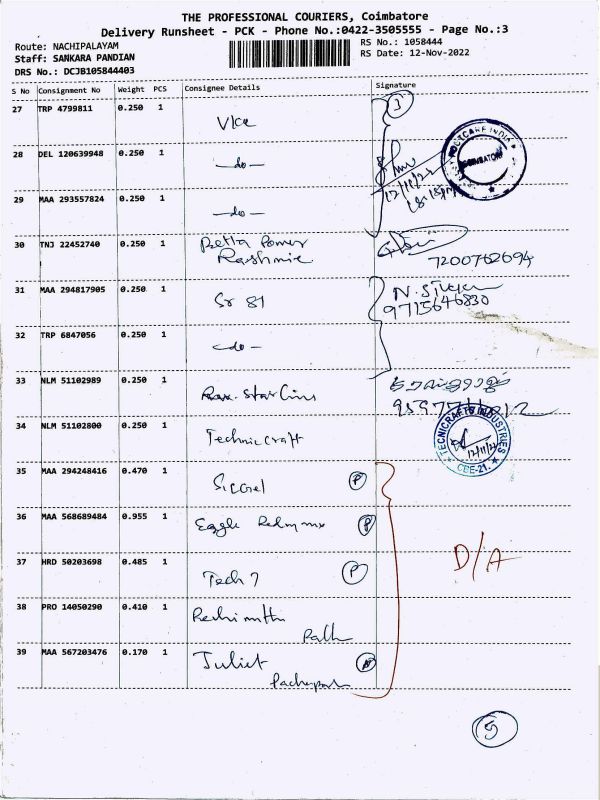 THE PROFESSIONAL COURIERS, Coimbatore
Delivery Runsheet - PCK - Phone No.:0422-3505555 - Page No.:3
Route: NACHIPALAYAM
RS No.: 1058444
Staff: SANKARA PANDIAN
RS Date: 12-Nov-2022
DRS No.: DCJB105844403
S No Consignment No Weight PCS Consignee Details Signature
27 TRP 4799811 0.250 1 Vice 3
28 DEL 120639948 0.250 1 -do-
12/11/22
29 MAA 293557824 0.250 1 -do-
30 TNJ 22452740 0.250 1 Delta Power
7200762694
31 MAA 294817905 0.250 1 Sr 81
9715646830
32 TRP 6847056 0.250 1 -do-
33 NLM 51102989 0.250 1
34 NLM 51102800 0.250 1 Technic craft
TECNICRAFTS INDUSTRIES
12/11/22
CBE-21.
35 MAA 294248416 0.470 1 P
36 MAA 568689484 0.955 1 Eagle P
37 HRD 50203698 0.485 1 Tech 7 P
D/A
38 PRO 14050290 0.410 1
39 MAA 567203476 0.170 1 Juliet
9